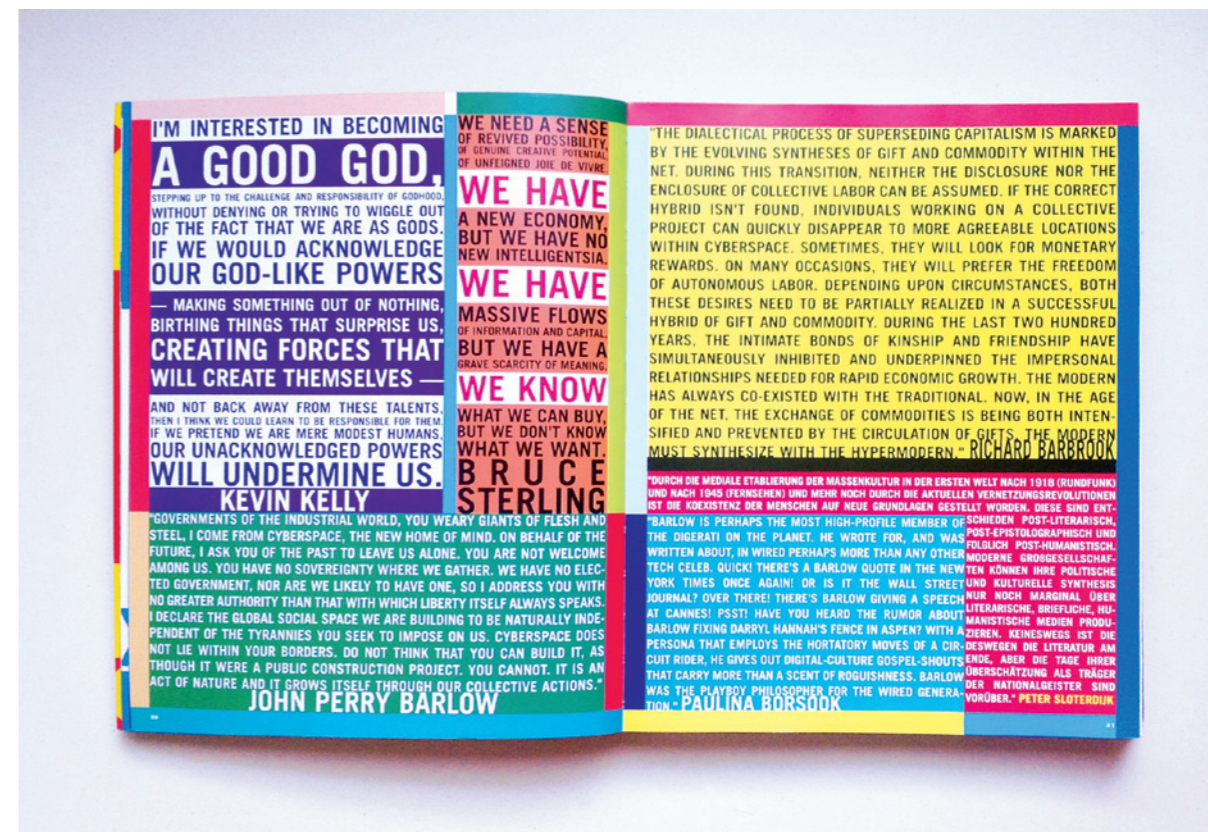 I'M INTERESTED IN BECOMING
A GOOD GOD,
STEPPING UP TO THE CHALLENGE AND RESPONSIBILITY OF GODHOOD,
WITHOUT DENYING OR TRYING TO WIGGLE OUT
OF THE FACT THAT WE ARE AS GODS.
IF WE WOULD ACKNOWLEDGE
OUR GOD-LIKE POWERS
— MAKING SOMETHING OUT OF NOTHING,
BIRTHING THINGS THAT SURPRISE US,
CREATING FORCES THAT
WILL CREATE THEMSELVES —
AND NOT BACK AWAY FROM THESE TALENTS,
THEN I THINK WE COULD LEARN TO BE RESPONSIBLE FOR THEM.
IF WE PRETEND WE ARE MERE MODEST HUMANS,
OUR UNACKNOWLEDGED POWERS
WILL UNDERMINE US.
KEVIN KELLY
WE NEED A SENSE
OF REVIVED POSSIBILITY,
OF GENUINE CREATIVE POTENTIAL,
OF UNFEIGNED JOIE DE VIVRE.
WE HAVE
A NEW ECONOMY,
BUT WE HAVE NO
NEW INTELLIGENTSIA.
WE HAVE
MASSIVE FLOWS
OF INFORMATION AND CAPITAL,
BUT WE HAVE A
GRAVE SCARCITY OF MEANING.
WE KNOW
WHAT WE CAN BUY,
BUT WE DON'T KNOW
WHAT WE WANT.
BRUCE
STERLING
"GOVERNMENTS OF THE INDUSTRIAL WORLD, YOU WEARY GIANTS OF FLESH AND
STEEL, I COME FROM CYBERSPACE, THE NEW HOME OF MIND. ON BEHALF OF THE
FUTURE, I ASK YOU OF THE PAST TO LEAVE US ALONE. YOU ARE NOT WELCOME
AMONG US. YOU HAVE NO SOVEREIGNTY WHERE WE GATHER. WE HAVE NO ELEC-
TED GOVERNMENT, NOR ARE WE LIKELY TO HAVE ONE, SO I ADDRESS YOU WITH
NO GREATER AUTHORITY THAN THAT WITH WHICH LIBERTY ITSELF ALWAYS SPEAKS.
I DECLARE THE GLOBAL SOCIAL SPACE WE ARE BUILDING TO BE NATURALLY INDE-
PENDENT OF THE TYRANNIES YOU SEEK TO IMPOSE ON US. CYBERSPACE DOES
NOT LIE WITHIN YOUR BORDERS. DO NOT THINK THAT YOU CAN BUILD IT, AS
THOUGH IT WERE A PUBLIC CONSTRUCTION PROJECT. YOU CANNOT. IT IS AN
ACT OF NATURE AND IT GROWS ITSELF THROUGH OUR COLLECTIVE ACTIONS."
JOHN PERRY BARLOW
"THE DIALECTICAL PROCESS OF SUPERSEDING CAPITALISM IS MARKED
BY THE EVOLVING SYNTHESES OF GIFT AND COMMODITY WITHIN THE
NET. DURING THIS TRANSITION, NEITHER THE DISCLOSURE NOR THE
ENCLOSURE OF COLLECTIVE LABOR CAN BE ASSUMED. IF THE CORRECT
HYBRID ISN'T FOUND, INDIVIDUALS WORKING ON A COLLECTIVE
PROJECT CAN QUICKLY DISAPPEAR TO MORE AGREEABLE LOCATIONS
WITHIN CYBERSPACE. SOMETIMES, THEY WILL LOOK FOR MONETARY
REWARDS. ON MANY OCCASIONS, THEY WILL PREFER THE FREEDOM
OF AUTONOMOUS LABOR. DEPENDING UPON CIRCUMSTANCES, BOTH
THESE DESIRES NEED TO BE PARTIALLY REALIZED IN A SUCCESSFUL
HYBRID OF GIFT AND COMMODITY. DURING THE LAST TWO HUNDRED
YEARS, THE INTIMATE BONDS OF KINSHIP AND FRIENDSHIP HAVE
SIMULTANEOUSLY INHIBITED AND UNDERPINNED THE IMPERSONAL
RELATIONSHIPS NEEDED FOR RAPID ECONOMIC GROWTH. THE MODERN
HAS ALWAYS CO-EXISTED WITH THE TRADITIONAL. NOW, IN THE AGE
OF THE NET, THE EXCHANGE OF COMMODITIES IS BEING BOTH INTEN-
SIFIED AND PREVENTED BY THE CIRCULATION OF GIFTS. THE MODERN
MUST SYNTHESIZE WITH THE HYPERMODERN." RICHARD BARBROOK
"DURCH DIE MEDIALE ETABLIERUNG DER MASSENKULTUR IN DER ERSTEN WELT NACH 1918 (RUNDFUNK)
UND NACH 1945 (FERNSEHEN) UND MEHR NOCH DURCH DIE AKTUELLEN VERNETZUNGSREVOLUTIONEN
IST DIE KOEXISTENZ DER MENSCHEN AUF NEUE GRUNDLAGEN GESTELLT WORDEN. DIESE SIND ENT-
SCHIEDEN POST-LITERARISCH,
POST-EPISTOLOGRAPHISCH UND
FOLGLICH POST-HUMANISTISCH.
MODERNE GROßGESELLSCHAF-
TEN KÖNNEN IHRE POLITISCHE
UND KULTURELLE SYNTHESIS
NUR NOCH MARGINAL ÜBER
LITERARISCHE, BRIEFLICHE, HU-
MANISTISCHE MEDIEN PRODU-
ZIEREN. KEINESWEGS IST DIE
DESWEGEN DIE LITERATUR AM
ENDE, ABER DIE TAGE IHRER
ÜBERSCHÄTZUNG ALS TRÄGER
DER NATIONALGEISTER SIND
VORÜBER." PETER SLOTERDIJK
"BARLOW IS PERHAPS THE MOST HIGH-PROFILE MEMBER OF
THE DIGERATI ON THE PLANET. HE WROTE FOR, AND WAS
WRITTEN ABOUT, IN WIRED PERHAPS MORE THAN ANY OTHER
TECH CELEB. QUICK! THERE'S A BARLOW QUOTE IN THE NEW
YORK TIMES ONCE AGAIN! OR IS IT THE WALL STREET
JOURNAL? OVER THERE! THERE'S BARLOW GIVING A SPEECH
AT CANNES! PSST! HAVE YOU HEARD THE RUMOR ABOUT
BARLOW FIXING DARRYL HANNAH'S FENCE IN ASPEN? WITH A
PERSONA THAT EMPLOYS THE HORTATORY MOVES OF A CIR-
CUIT RIDER, HE GIVES OUT DIGITAL-CULTURE GOSPEL-SHOUTS
THAT CARRY MORE THAN A SCENT OF ROGUISHNESS. BARLOW
WAS THE PLAYBOY PHILOSOPHER FOR THE WIRED GENERA-
TION." PAULINA BORSOOK